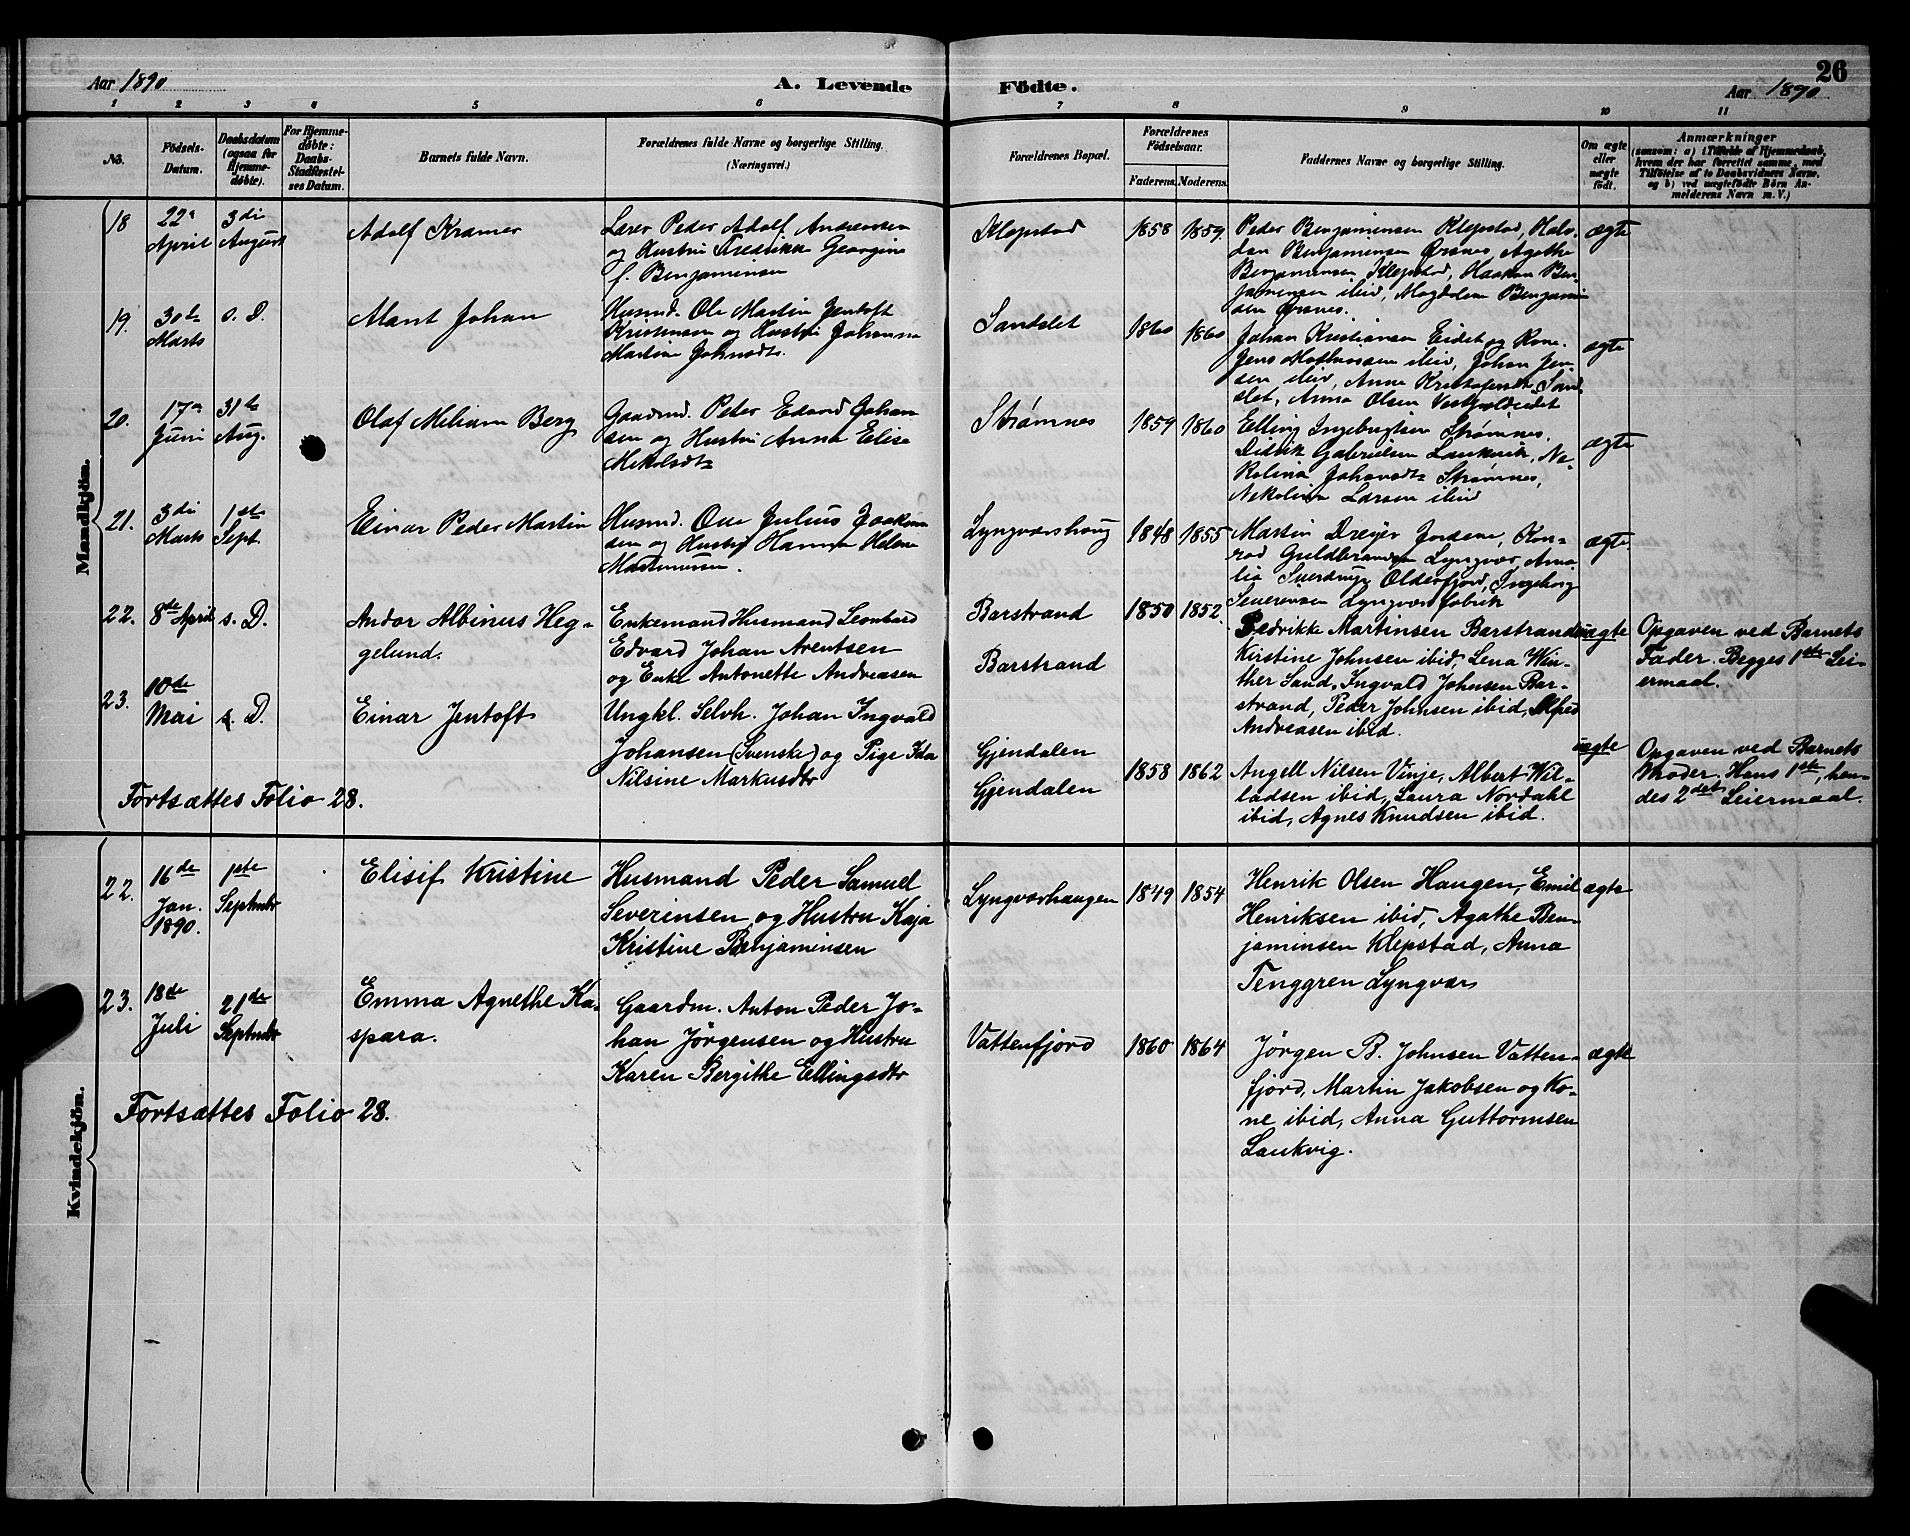 Aar 1890
A. Levende Födte.
26
Aar 1890
1 2 3 4 5 6 7 8 9 10 11
No.
Födsels-Datum.
Daabsdatum (ogsaa for Hjemme-döbte).
For Hjemme-döbte: Daabs-Stadfæstel-ses Datum.
Barnets fulde Navn.
Forældrenes fulde Navne og borgerlige Stilling.
(Næringsvei.)
Forældrenes Bopæl.
Forældrenes Födselsaar.
Faderens. Moderens.
Faddernes Navne og borgerlige Stilling.
Om ægte eller uægte födt.
Anmærkninger
(saasom: a) i Tilfælde af Hjemmedaab,
hvem der har forrettet samme, med
Tilföielse af to Daabsvidners Navne,
og b) ved uægtefödte Börn An-
melderens Navn m. V.)
Mandkjön.
18 22de April 3di August
Adolf Kramer
Lærer Peder Adolf Andreassen
og Hustru Fredrikke Georgine
f. Benjaminsen
Klepstad 1858 1859
Peder Benjaminsen Klepstad, Halv-
dan Benjaminsen Ørsnes, Agathe
Benjaminsen, Klepstad, Haakon Ben-
jaminsen ibid, Magdalena Benjamin
sen Ørsnes.
ægte
19. 30te Marts s. D.
Mant Johan
Husmd. Ole Martin Jentoft
Kristensen og Hustru Johanna
Martine Johnsdtr.
Sandslet 1860 1860
Johan Kristiansen Eidet og Kone.
Jens Mathiassen ibid, Johan Jen-
sen ibid, Anne Kristofersen Sand
slet, Anna Olsen Vestpoldeidet
ægte
20. 17de Juni 31te Aug.
Olaf Meliam Berg
Gaardmd. Peter Edvard Johan
sen og Hustru Anna Elise
Mikalsdtr
Strømnes 1859 1860
Elling Ingebrigtsen Strømnes,
Didrik Gabrielsen Laukvik, Ni-
kolina Johansdtr Strømnes,
Nikolina Larsen ibid
ægte
21. 3di Marts 1ste Sept.
Einar Peder Martin
Husmd. Ole Julius Joakim
sen og Hustru Hanna Helene
Martinussen.
Lyngværshaug 1848 1855
Martin Dreyer Jordene, Kon-
rad Guldbrandsen Lyngvær, Ama
lia Sverdrup Olderfjord, Ingeborg
Severinsen Lyngværfabrik
ægte.
22. 8de April s. D.
Andor Albinus Heg-
gelund.
Enkemand Husmand Leonhard
Edvard Johan Arentsen
og Enke Antonette Andreasen
Barstrand
Barstrand
1850 1852
Fredrikke Martinsen Barstrand
Kirstine Johnsen ibid, Lena Win-
ther Sand, Ingvald Johnsen Bar-
strand, Peder Johnsen ibid, Alfred
Andreasen ibid.
uægte
Opgaven ved Barnets
Fader. Begges 1ste Lei-
ermaal.
23. 10de Mai s. D.
Einar Jentoft
Ungkl. Selvh. Johan Ingvald
Johansen (Svenske) og Pige Ida
Nilsine Markusdtr
Gjendalen
Gjendalen
1858 1862
Angell Nilsen Vinje, Albert Wil-
ladsen ibid, Laura Nordahl
ibid, Agnes Knudsen ibid.
uægte
Opgaven ved Barnets
Moder. Hans 1ste, hen-
des 2det Leiermaal.
Fortsættes Folio 28.
Kvindekjön.
22. 16de Jan. 1890. 1ste Septmbr
Elisif Kristine
Husmand Peder Samuel
Severinsen og Hustru Kaja
Kristine Benjaminsen
Lyngværhaugen 1849 1854
Henrik Olsen Haugen, Emil
Henriksen ibid, Agathe Ben-
jaminsen Klepstad, Anna
Tenggren Lyngvær
ægte
23. 18de Juli 21de Septmbr
Emma Agnethe Ka-
spara.
Gaardm. Anton Peder Jo-
han Jørgensen og Hustru
Karen Bergithe Ellingsdtr
Vattenfjord 1860 1864
Jørgen B. Johnsen Vatten-
fjord, Martin Jakobsen og Ko-
ne ibid, Anna Guttormsen
Laukvig.
ægte
Fortsættes Folio 28.